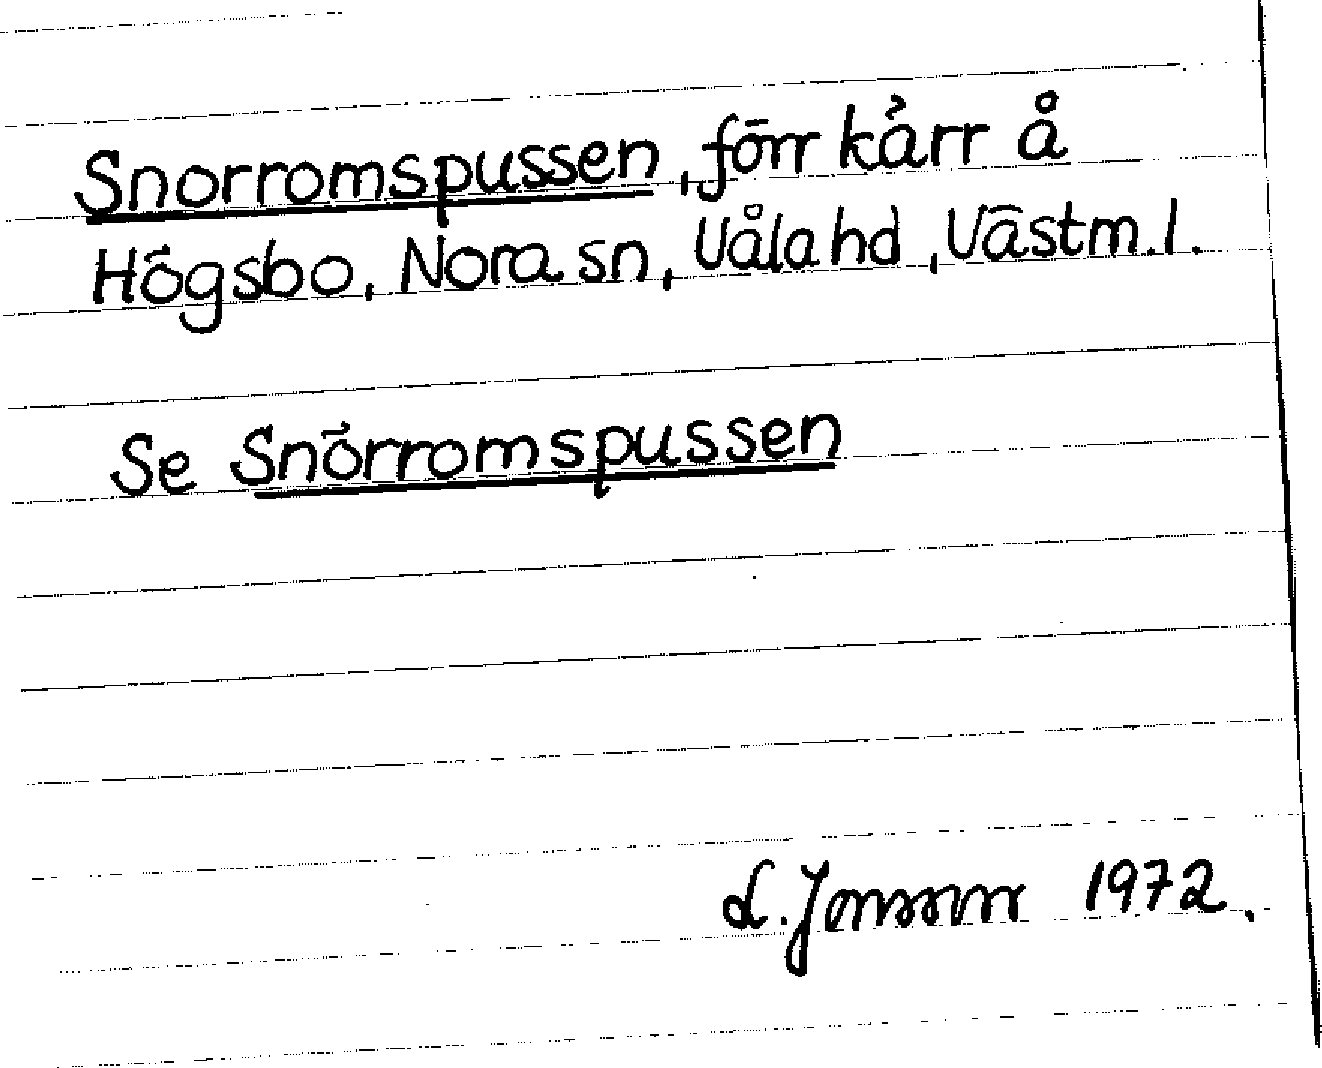 Snorromspussen, förr kärr å
Högsbo, Nora sn, Våla hd, Västm. l.
Se Snörromspussen
L. Jonsson 1972.